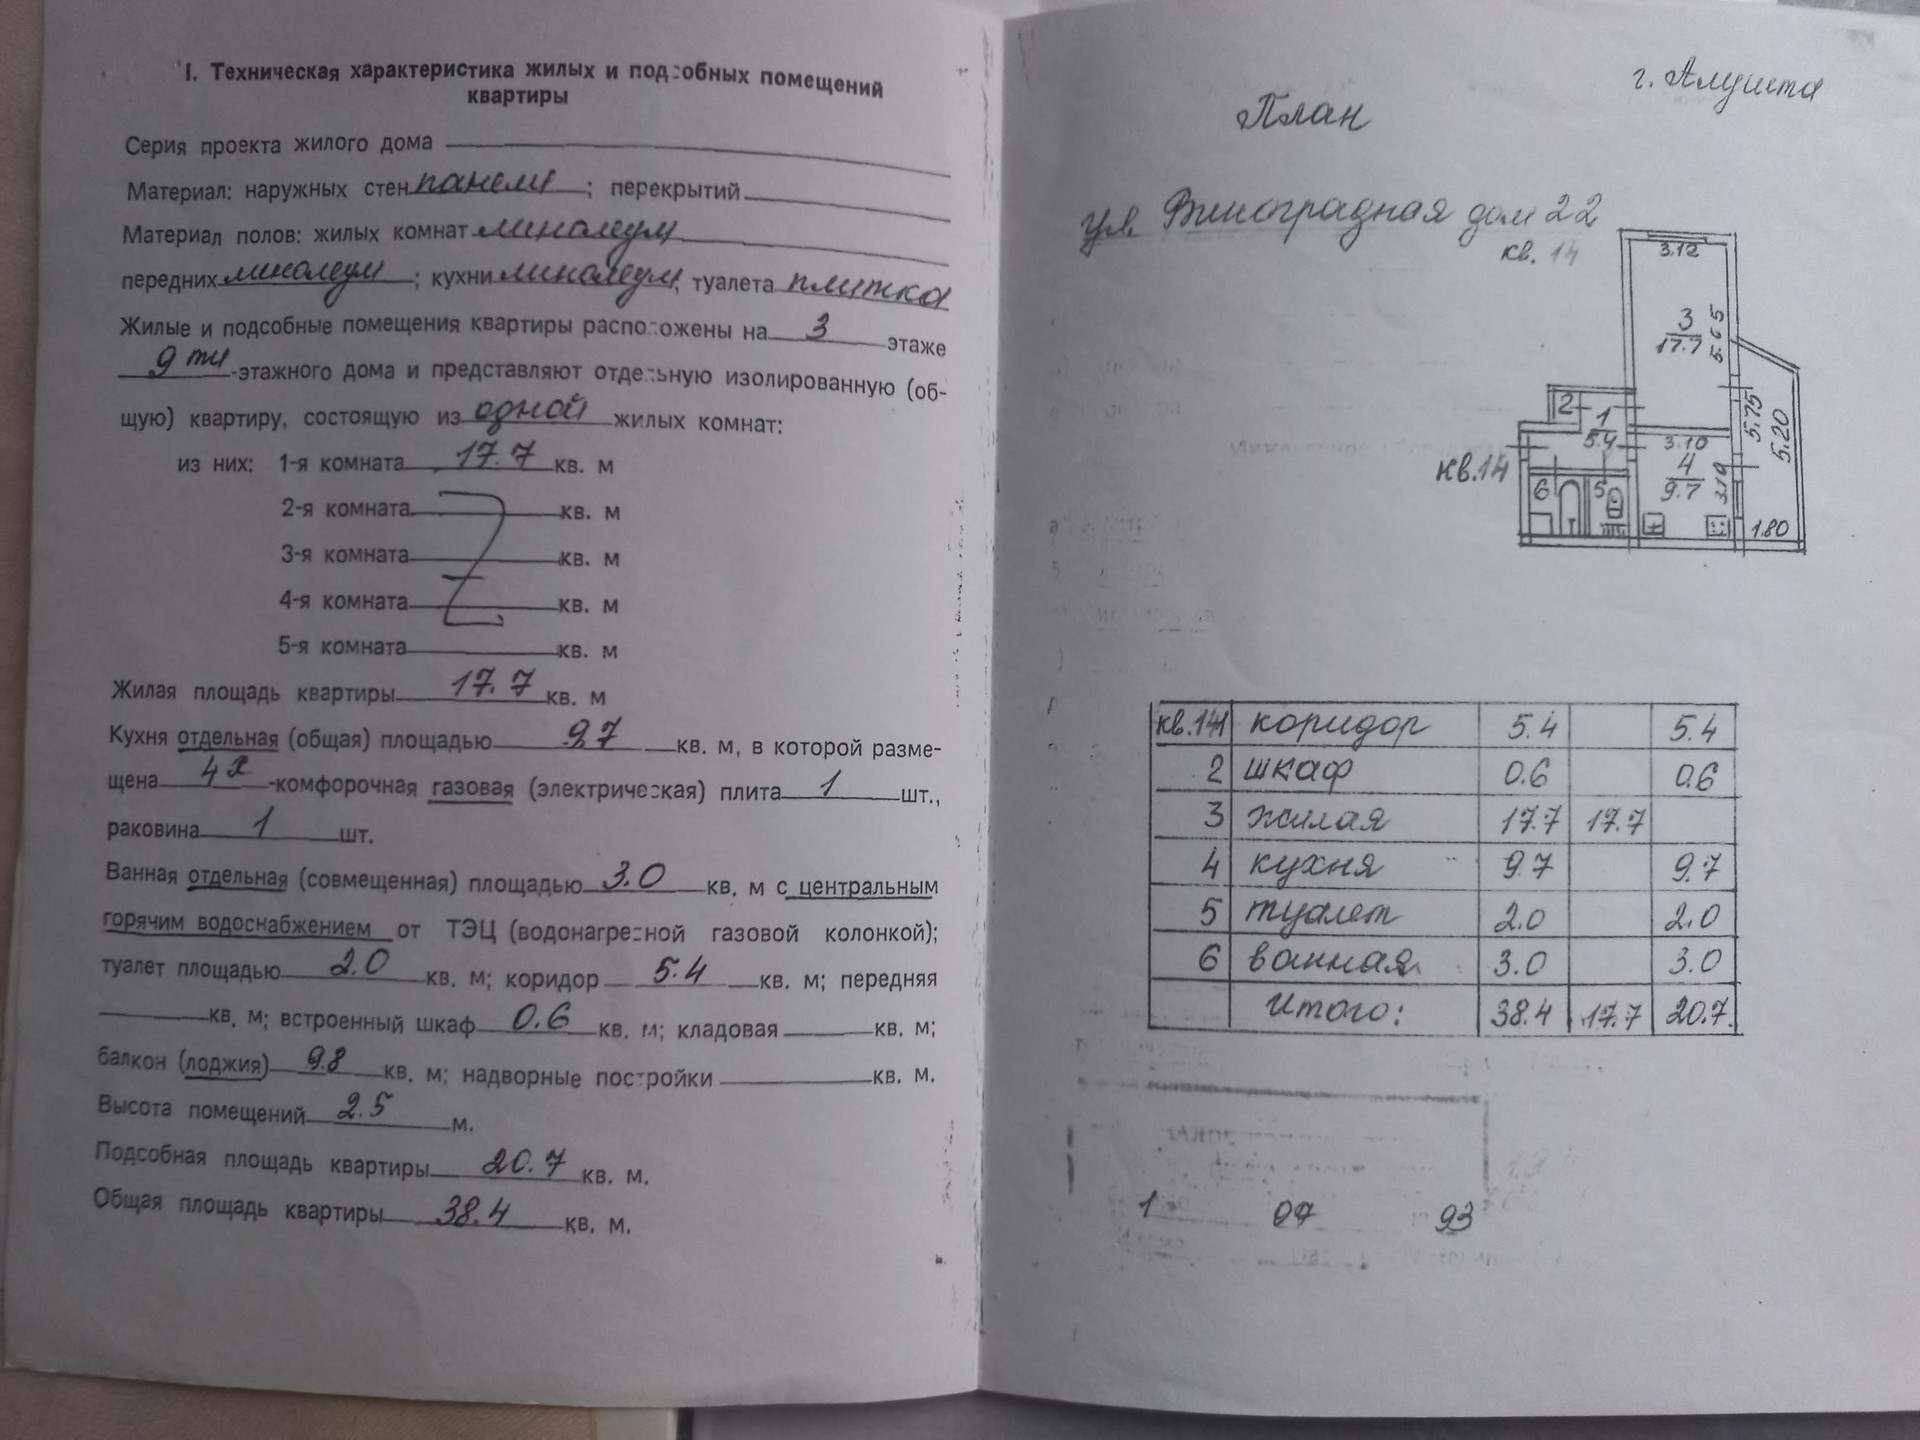 I. Техническая характеристика жилых и подсобных помещений
квартиры
Серия проекта жилого дома
Материал: наружных стен панели ; перекрытий
Материал полов: жилых комнат линолеум
передних линолеум ; кухни линолеум; туалета плитка
Жилые и подсобные помещения квартиры расположены на 3 этаже
9 ти -этажного дома и представляют отдельную изолированную (об-
щую) квартиру, состоящую из одной жилых комнат:
из них: 1-я комната 17.7 кв. м
2-я комната кв. м
3-я комната кв. м
4-я комната кв. м
5-я комната кв. м
Жилая площадь квартиры 17.7 кв. м
Кухня отдельная (общая) площадью 9.7 кв. м, в которой разме-
щена 4х -комфорочная газовая (электрическая) плита 1 шт.,
раковина 1 шт.
Ванная отдельная (совмещенная) площадью 3.0 кв. м с центральным
горячим водоснабжением от ТЭЦ (водонагревной газовой колонкой);
туалет площадью 2.0 кв. м; коридор 5.4 кв. м; передняя
кв. м; встроенный шкаф 0.6 кв. м; кладовая кв. м;
балкон (лоджия) 9.8 кв. м; надворные постройки кв. м.
Высота помещений 2.5 м.
Подсобная площадь квартиры 20.7 кв. м.
Общая площадь квартиры 38.4 кв. м.
г. Алушта
План
ул. Виноградная дом 22
кв. 14
3.12
3
17.7
5.65
2
1
5.4
5.75
5.20
3.10
4
9.7
3.10
кв.14
6
5
1.80
кв.14 1 коридор 5.4 5.4
2 шкаф 0.6 0.6
3 жилая 17.7 17.7
4 кухня 9.7 9.7
5 туалет 2.0 2.0
6 ванная 3.0 3.0
Итого: 38.4 17.7 20.7
1 07 93